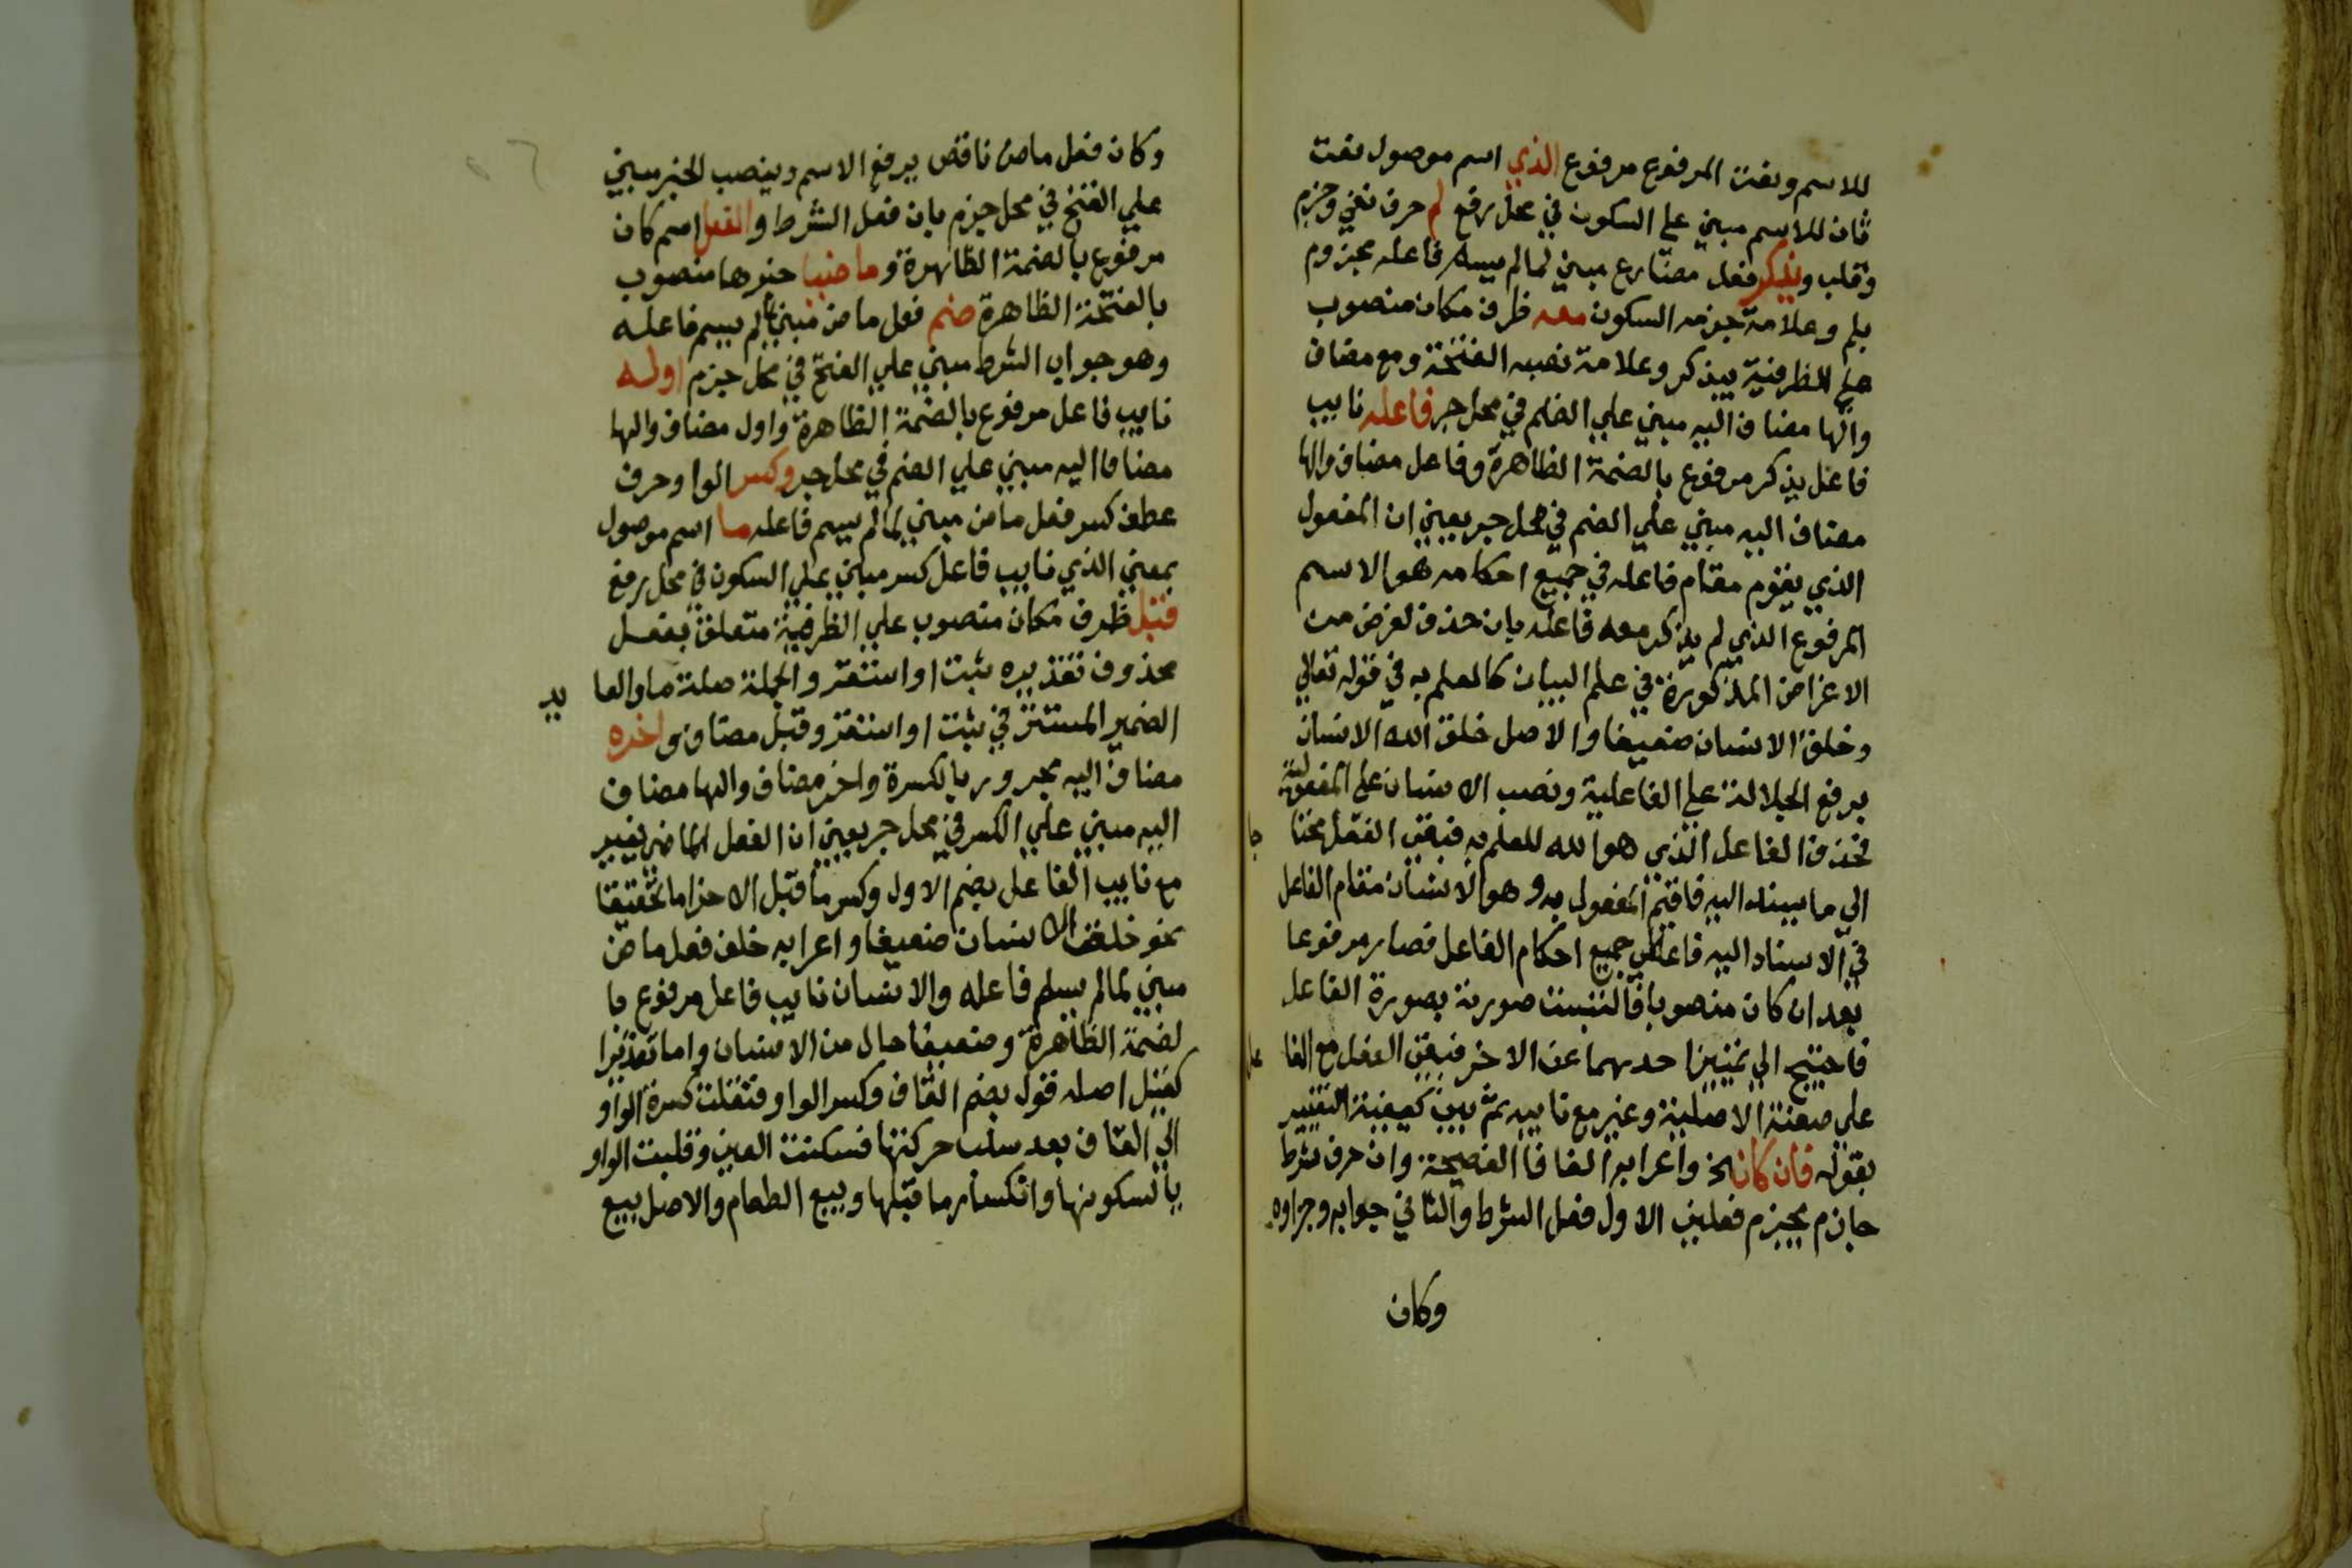 للاسم ونعت المرفوع مرفوع الذي اسم موصول نعت
ثان للاسم مبني على السكون في محل رفع لم حرف نفي وجزم
وقلب ويذكر فعل مضارع مبني لما لم يسم فاعله مجزوم
بلم وعلامة جزمه السكون معه ظرف مكان منصوب
على الظرفية بيذكر وعلامة نصبه الفتحة ومع مضاف
والها مضاف اليه مبني علي الضم في محل جر فاعله نايب
فاعل يذكر مرفوع بالضمة الظاهرة وفاعل مضاف والها
مضاف اليه مبني علي الضم في محل جر يعني ان المفعول
الذي يقوم مقام فاعله في جميع احكامه هو الاسم
المرفوع الذي لم يذكر معه فاعله بان حذف لغرض من
الاغراض المذكورة في علم البيان كالعلم به في قوله تعالي
وخلق الانسان ضعيفا والاصل خلق الله الانسان
برفع الجلالة على الفاعلية ونصب الانسان على المفعولية
فحذف الفاعل الذي هو الله للعلم به فبقي الفعل محتا جا
الي ما يسند اليه فاقيم المفعول به وهو الانسان مقام الفاعل
في الاسناد اليه فاعطي جميع احكام الفاعل فصار مرفوعا
بعد ان كان منصوبا فالتبست صورته بصورة الفاعل
فاحتيج الي تمييز احدهما عن الاخر فبقي الفعل مع الفا عل
علي صيغته الاصلية وغير مع نايبه ثم بين كيفية التغيير
بقوله فان كان الخ واعرابه الفا فا الفصيحة وان حرف شرط
جازم يجزم فعلين الاول فعل الشرط والثاني جوابه وجزاوه
وكان
وكان فعل ماض ناقص يرفع الاسم وينصب الخبر مبني
علي الفتح في محل جزم بان فعل الشرط والفعل اسم كان
مرفوع بالضمة الظاهرة وماضيا خبرها منصوب
بالفتحة الظاهرة ضم فعل ماض مبني لما لم يسم فاعله
وهو جواب الشرط مبني علي الفتح في محل جزم اوله
نايب فاعل مرفوع بالضمة الظاهرة واول مضاف والها
مضاف اليه مبني علي الضم في محل جر وكسر الواو حرف
عطف كسر فعل ماض مبني لما لم يسم فاعله ما اسم موصول
بمعني الذي نايب فاعل كسر مبني علي السكون في محل رفع
قبل ظرف مكان منصوب علي الظرفية متعلق بفعل
محذوف تقديره ثبت او استقر والجملة صلة ما والعا يد
الضمير المستتر في ثبت او استقر وقبل مضاف واخره
مضاف اليه مجرور بالكسرة واخر مضاف والها مضاف
اليه مبني علي الكسر في محل جر يعني ان الفعل الماضي يغير
مع نايب الفاعل بضم الاول وكسر ما قبل الاخر اما تحقيقا
نحو خلق الانسان ضعيفا واعرابه خلق فعل ماض
مبني لما لم يسم فاعله والانسان نايب فاعل مرفوع با
لضمة الظاهرة وضعيفا حال من الانسان واما تقديرا
كقيل اصله قول بضم القاف وكسر الواو فنقلت كسرة الواو
الي القاف بعد سلب حركتها فسكنت العين وقلبت الواو
يا لسكونها وانكسار ما قبلها وبيع الطعام والاصل بيع